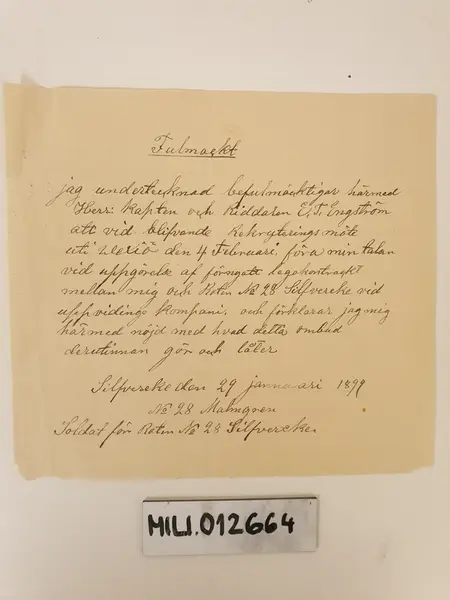 Fulmackt
jag undertecknad befulmäcktigar härmed
Herr: kapten och Riddaren E.T. Engström
att vid blifvande Rekryterings möte
uti Wexiö den 4 Februari, föra min talan
vid uppgörelse af förngått legokontrackt
mellan mig och Roten No 28 Silfvereke vid
uppvidinge kompani, och förklarar jag mig
härmed nöjd med hvad detta ombud
derutinnan gör och låter
Silfvereke den 29 januari 1899
No 28 Malmgren
Soldat för Roten No 28 Silfvereke
MILI.012664